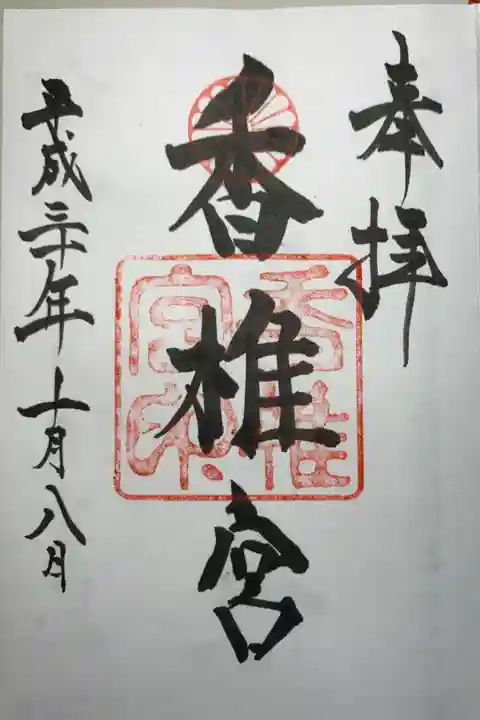 奉拝
香椎宮
香椎宮印
平成三十年十月八日